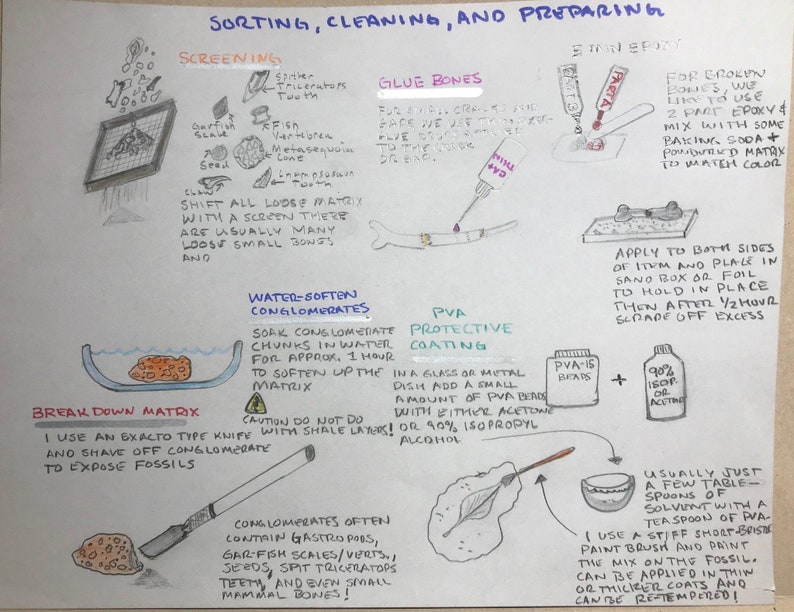 SORTING, CLEANING, AND PREPARING
SCREENING
Spitter
Triceratops
Tooth
Garfish
Scale
Fish
Vertibrea
Seed
Metasequoia
Cone
Claw
Tooth
SHIFT ALL LOOSE MATRIX
WITH A SCREEN THERE
ARE USUALLY MANY
LOOSE SMALL BONES
AND
GLUE BONES
FOR SMALL CRACKS AND
GAPS WE USE THIN
GLUE
TO THE
OR GAP.
CA+
THIN
5 MIN EPOXY
PART B
PART A
FOR BROKEN
BONES, WE
LIKE TO USE
2 PART EPOXY &
MIX WITH SOME
BAKING SODA +
POWDERED MATRIX
TO MATCH COLOR
APPLY TO BOTH SIDES
OF ITEM AND PLACE IN
SAND BOX OR FOIL
TO HOLD IN PLACE
THEN AFTER 1/2 HOUR
SCRAPE OFF EXCESS
WATER-SOFTEN
CONGLOMERATES
SOAK CONGLOMERATE
CHUNKS IN WATER
FOR APPROX. 1 HOUR
TO SOFTEN UP THE
MATRIX
CAUTION DO NOT DO
WITH SHALE LAYERS!
PVA
PROTECTIVE
COATING
IN A GLASS OR METAL
DISH ADD A SMALL
AMOUNT OF PVA BEADS
WITH EITHER ACETONE
OR 90% ISOPROPYL
ALCOHOL
PVA-15
BEADS
+
90%
ISOP.
OR
ACETONE
BREAK DOWN MATRIX
I USE AN EXACTO TYPE KNIFE
AND SHAVE OFF CONGLOMERATE
TO EXPOSE FOSSILS
CONGLOMERATES OFTEN
CONTAIN GASTROPODS,
GAR-FISH SCALES/VERTS.,
SEEDS, SPIT TRICERATOPS
TEETH, AND EVEN SMALL
MAMMAL BONES!
USUALLY JUST
A FEW TABLE-
SPOONS OF
SOLVENT WITH A
TEASPOON OF PVA.
I USE A STIFF SHORT-BRISTLE
PAINT BRUSH AND PAINT
THE MIX ON THE FOSSIL.
CAN BE APPLIED IN THIN
OR THICKER COATS AND
CAN BE RE-TEMPERED!